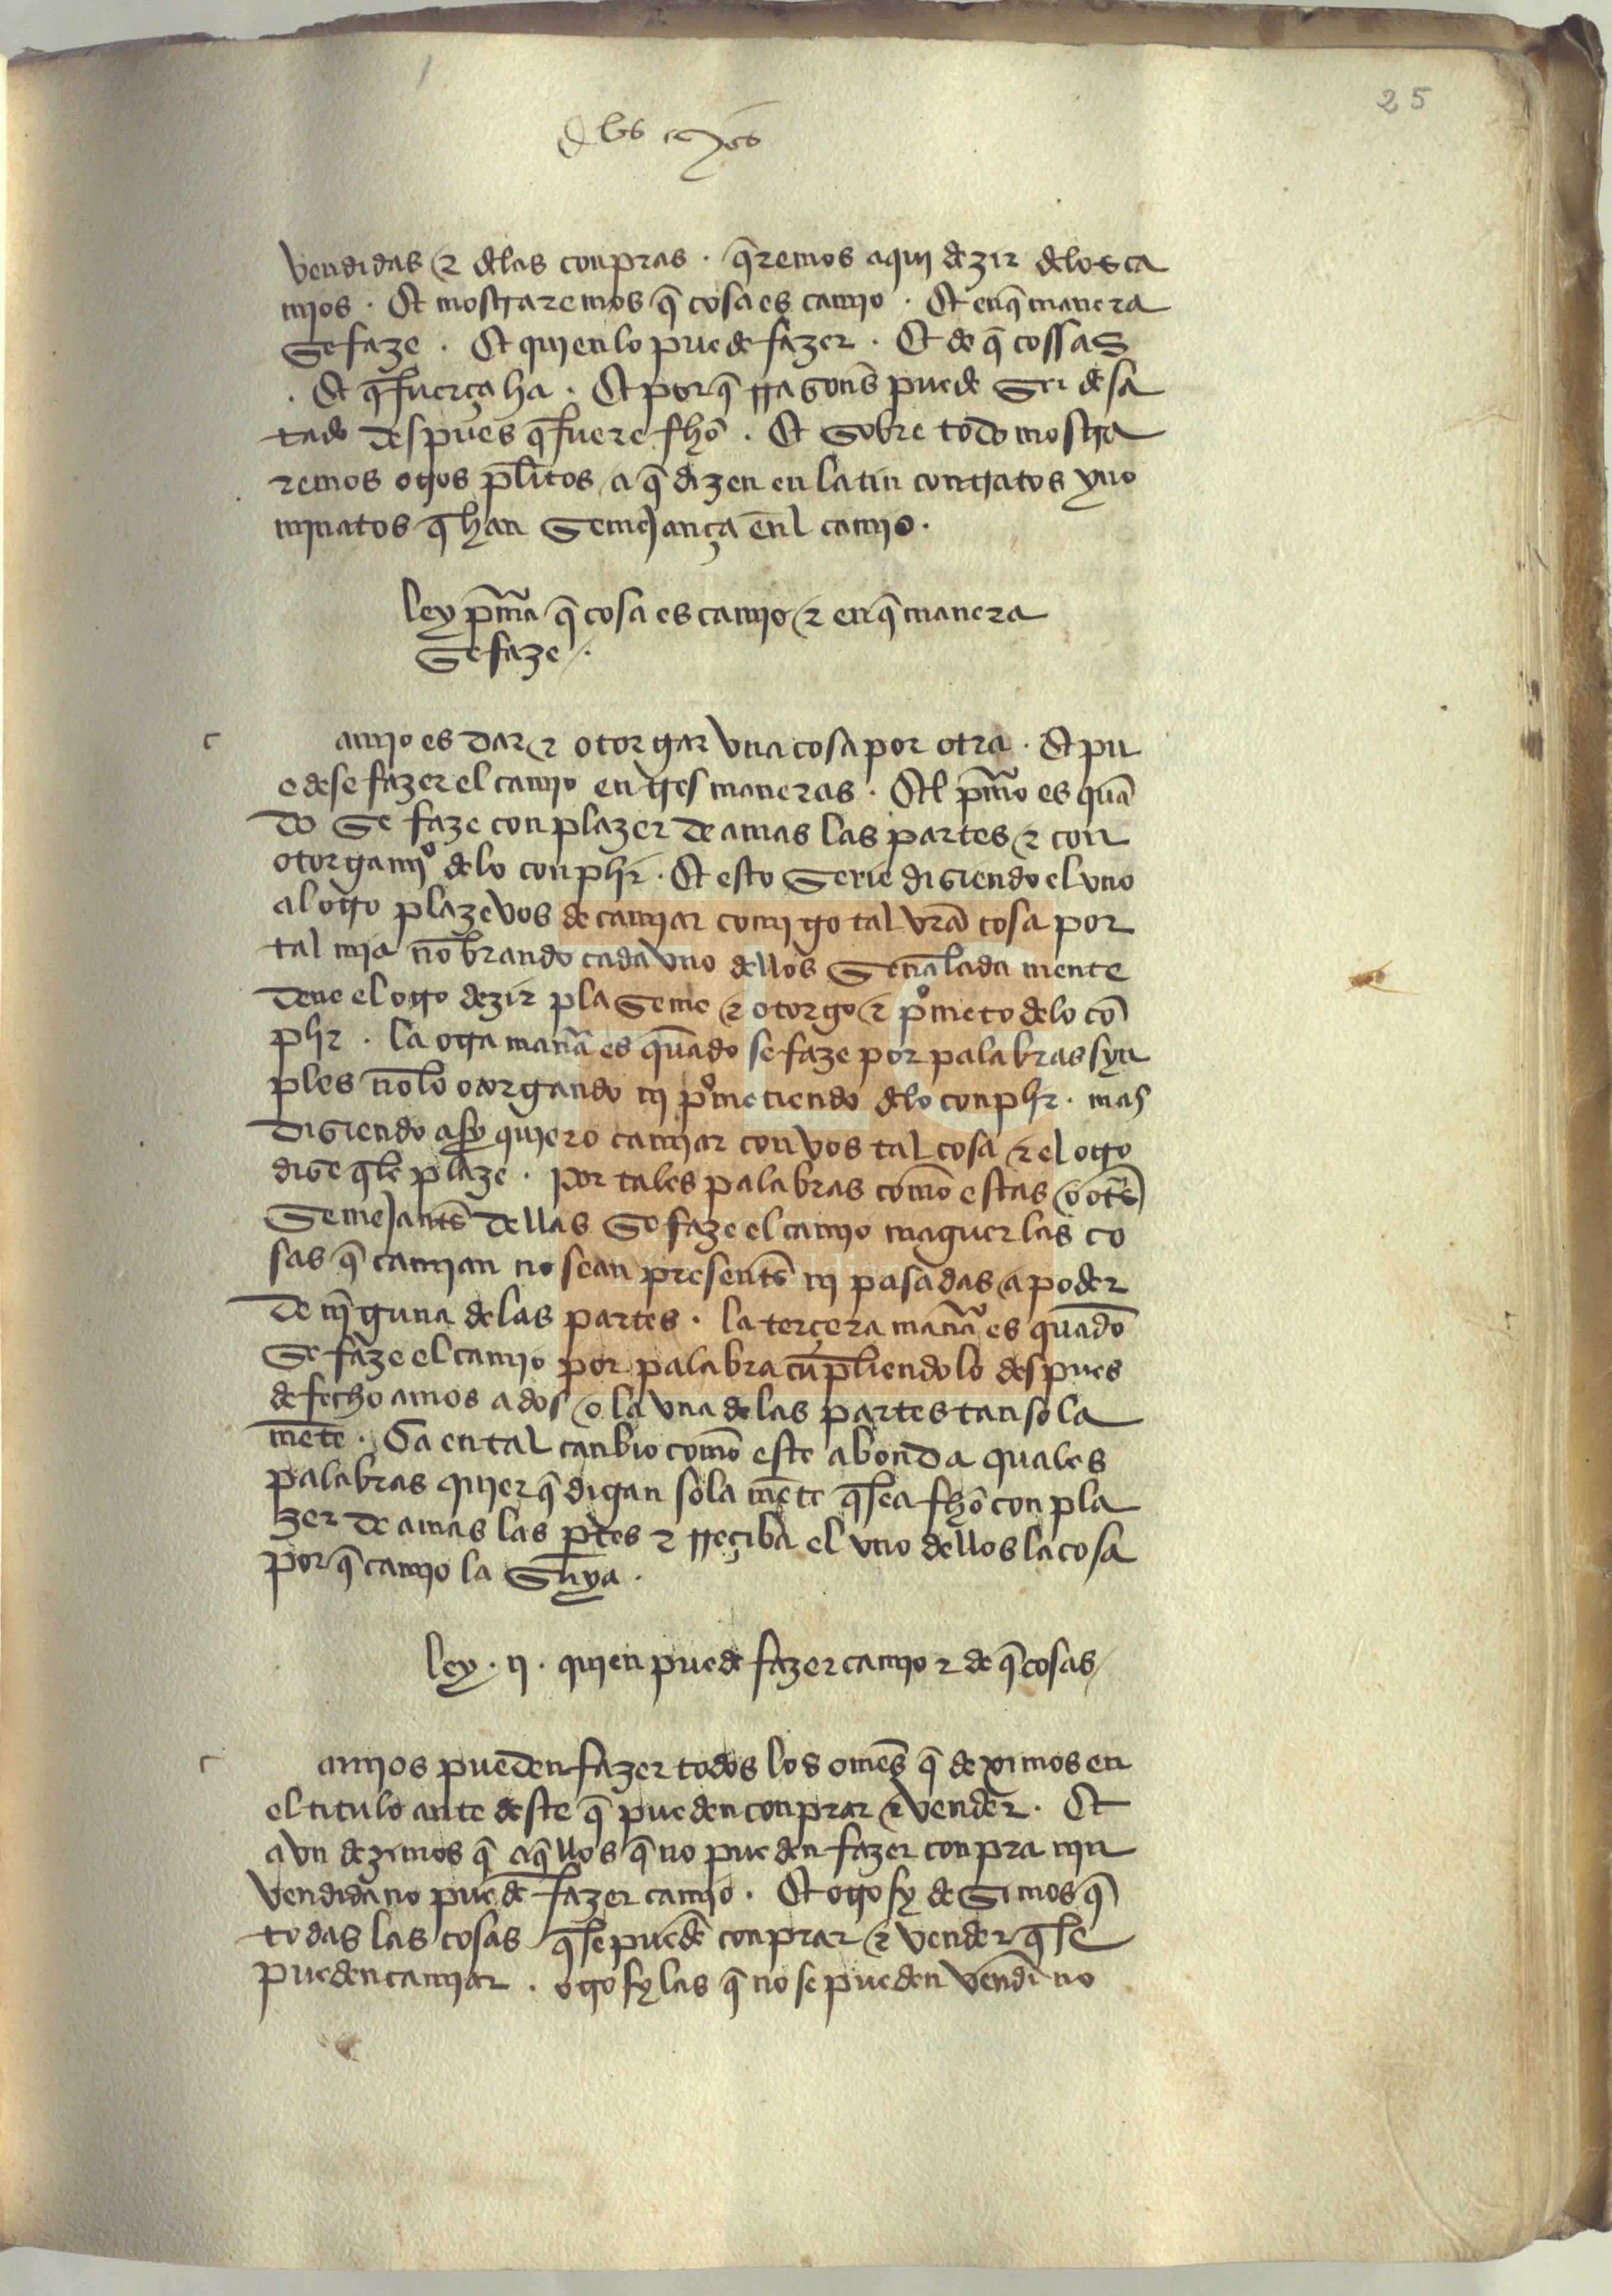 25
vendidas ⁊ delas conpras . q̃remos aqui dezir delos ca
mios . Et mostraremos q̃ cosa es camio . Et en q̃ manera
se faze . Et quien lo puede fazer . Et de q̃ cossas
. Et q̃ fuerça ha . Et por q̃ rrasonẽs puede ser desa
tado despues q̃ fuere fh̃o . Et sobre todo mostra
remos otros pl̃itos a q̃ dizen en latin contratos yno
minatos q̃ han semejança enl camio .
ley p̃mã q̃ cosa es camio ⁊ en q̃ manera
se faze .
c amio es dar ⁊ otorgar vna cosa por otra . Et pu
edese fazer el camio en tres maneras . El p̃mo es quã
do se faze con plazer de amas las partes ⁊ con
otorgamiº delo conplir . Et esto serie disiendo el vno
al otro plazevos de camiar comigo tal vr̃a cosa por
tal mia nõbrando cada vno dellos señalada mente
deue el otro dezir plaseme ⁊ otorgo ⁊ pºmeto delo cõ
plir . la otra mañã es quãdo se faze por palabras syn
ples nõ lo otorgando ni pºmetiendo delo conplir . mas
disiendo asy quiero camiar con vos tal cosa ⁊ el otro
dise q̃ le plaze . por tales palabras como estas o otr̃s
semejantẽs dellas se faze el camio maguer las co
sas q̃ camian no sean presentẽs ni pasadas a poder
de nĩguna de las partes . la terçera mañã es quãdo
se faze el camio por palabra cũpliendolo despues
de fecho amos a dos o la vna de las partes tan sola
mẽte . Ca en tal canbio como este abonda quales
palabras quier q̃ digan sola mẽte q̃ sea fh̃o con pla
zer de amas las p̃tes ⁊ rreçiba el vno dellos la cosa
por q̃ camio la suya .
ley . ii . quien puede fazer camio ⁊ de q̃ cosas
c amios pueden fazer todos los omẽs q̃ deximos en
el titulo ante deste q̃ pueden conprar ⁊ vender . Et
avn dezimos q̃ aq̃llos q̃ no pueden fazer conpra nin
vendida no puedẽ fazer camio . Et otro sy desimos q̃
todas las cosas q̃ se puedẽ conprar ⁊ vender q̃ se
pueden camiar . otro sy las q̃ no se pueden vendr̃ no